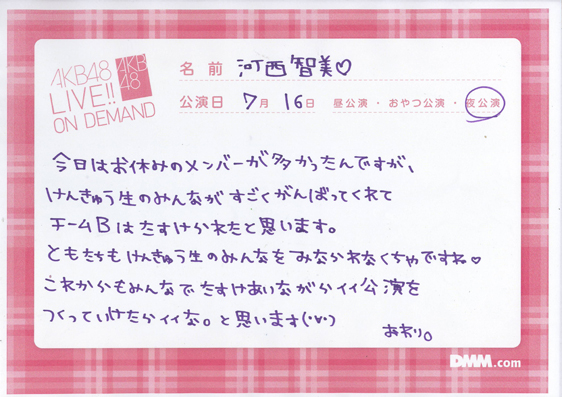 AKB48
LIVE!!
ON DEMAND
AKB
48
名前 河西智美♡
公演日 7月 16日 昼公演・おやつ公演・夜公演
今日はお休みのメンバーが多かったんですが、
けんきゅう生のみんながすごくがんばってくれて
チームBはたすけられたと思います。
ともちもけんきゅう生のみんなをみなられなくちゃですね♡
これからもみんなでたすけあいながらイイ公演を
つくっていけたらイイな。と思います(･∀･)
おわり。
DMM.com